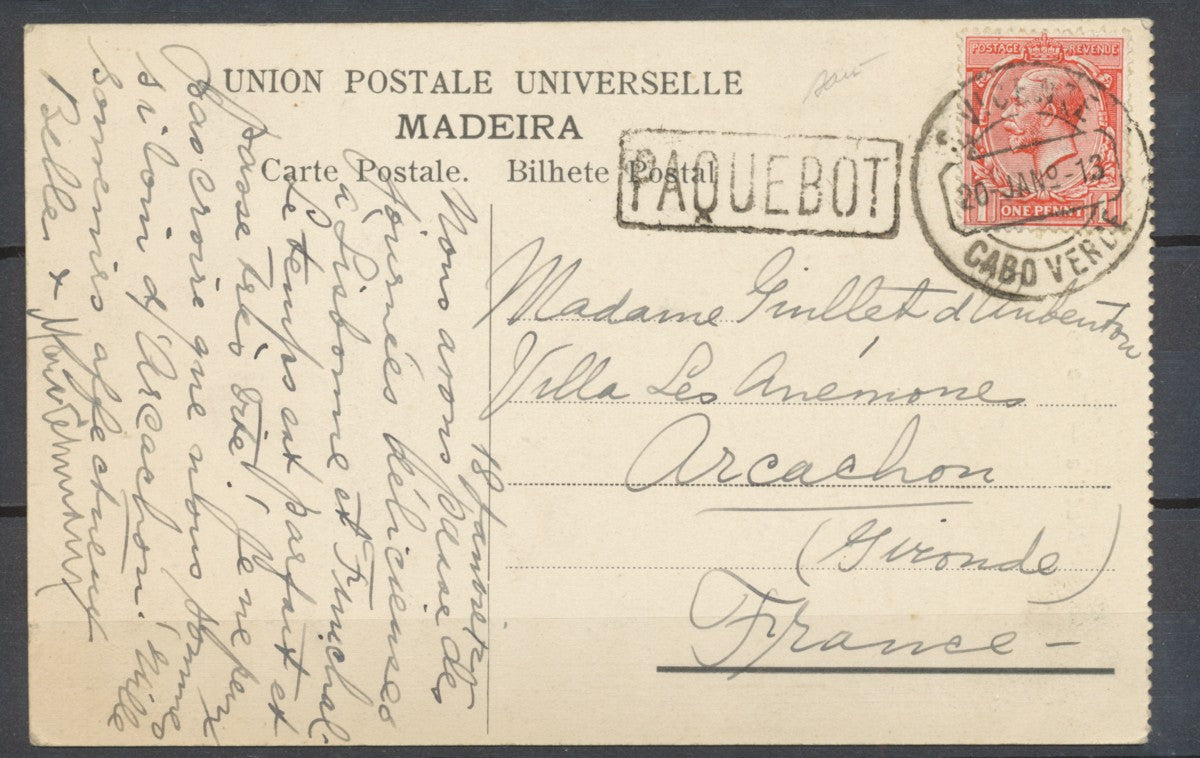 UNION POSTALE UNIVERSELLE
MADEIRA
Carte Postale. Bilhete Postal
PAQUEBOT
POSTAGE REVENUE
ONE PENNY
S. VICENTE
20-JAN-13
CABO VERDE
Madame Guillet d'Aubenton
Villa Les Anémones
Arcachon
(Gironde)
France -
18 Janvier
Nous avons passé des
journées délicieuses
à Lisbonne et Funchal.
Le temps est parfait et
passe très vite! Je ne peux
pas croire que nous sommes
si loin d'Arcachon! Mille
souvenirs affectueux
Belles &